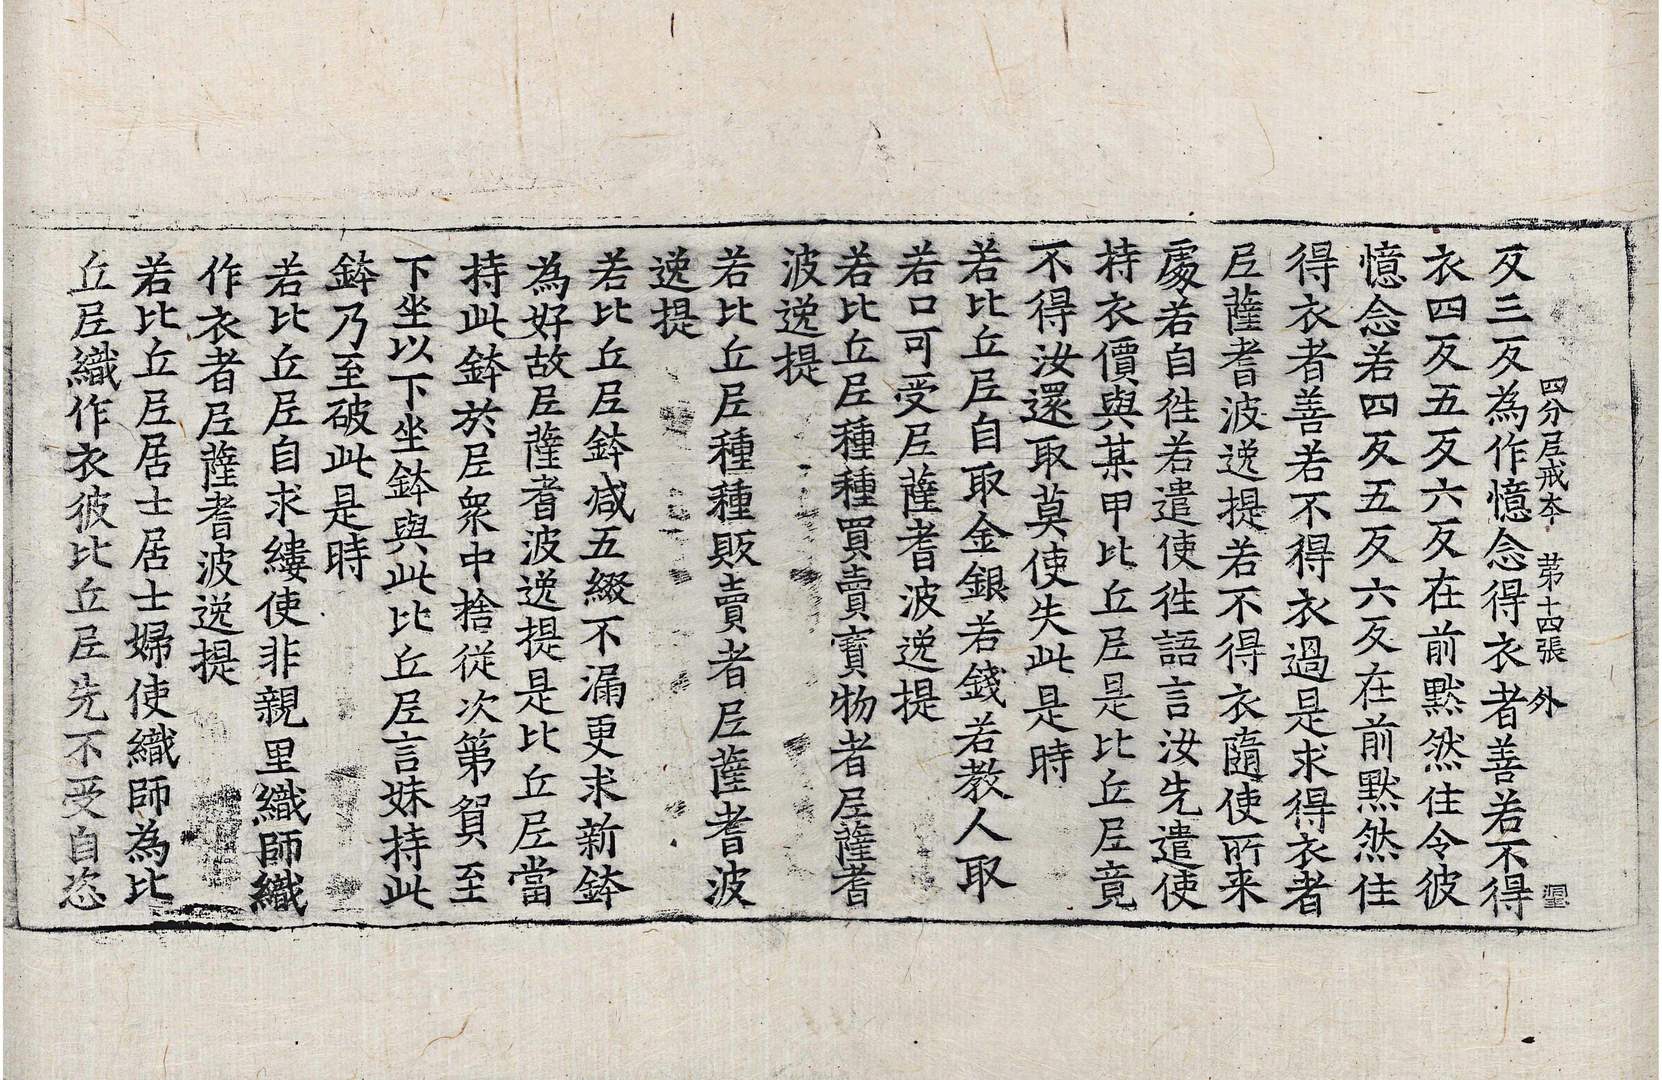 四分尼戒本 第十四張 外
反三反為作憶念得衣者善若不得
衣四反五反六反在前默然住令彼
憶念若四反五反六反在前默然住
得衣者善若不得衣過是求得衣者
尼薩耆波逸提若不得衣隨使所来
處若自徃若遣使徃語言汝先遣使
持衣價與某甲比丘尼是比丘尼竟
不得汝還取莫使失此是時
若比丘尼自取金銀若錢若教人取
若口可受尼薩耆波逸提
若比丘尼種種買賣寶物者尼薩耆
波逸提
若比丘尼種種販賣者尼薩耆波
逸提
若比丘尼鉢减五綴不漏更求新鉢
為好故尼薩耆波逸提是比丘尼當
持此鉢於尼衆中捨從次第貿至
下坐以下坐鉢與此比丘尼言妹持此
鉢乃至破此是時
若比丘尼自求縷使非親里織師織
作衣者尼薩耆波逸提
若比丘尼居士居士婦使織師為比
丘尼織作衣彼比丘尼先不受自恣